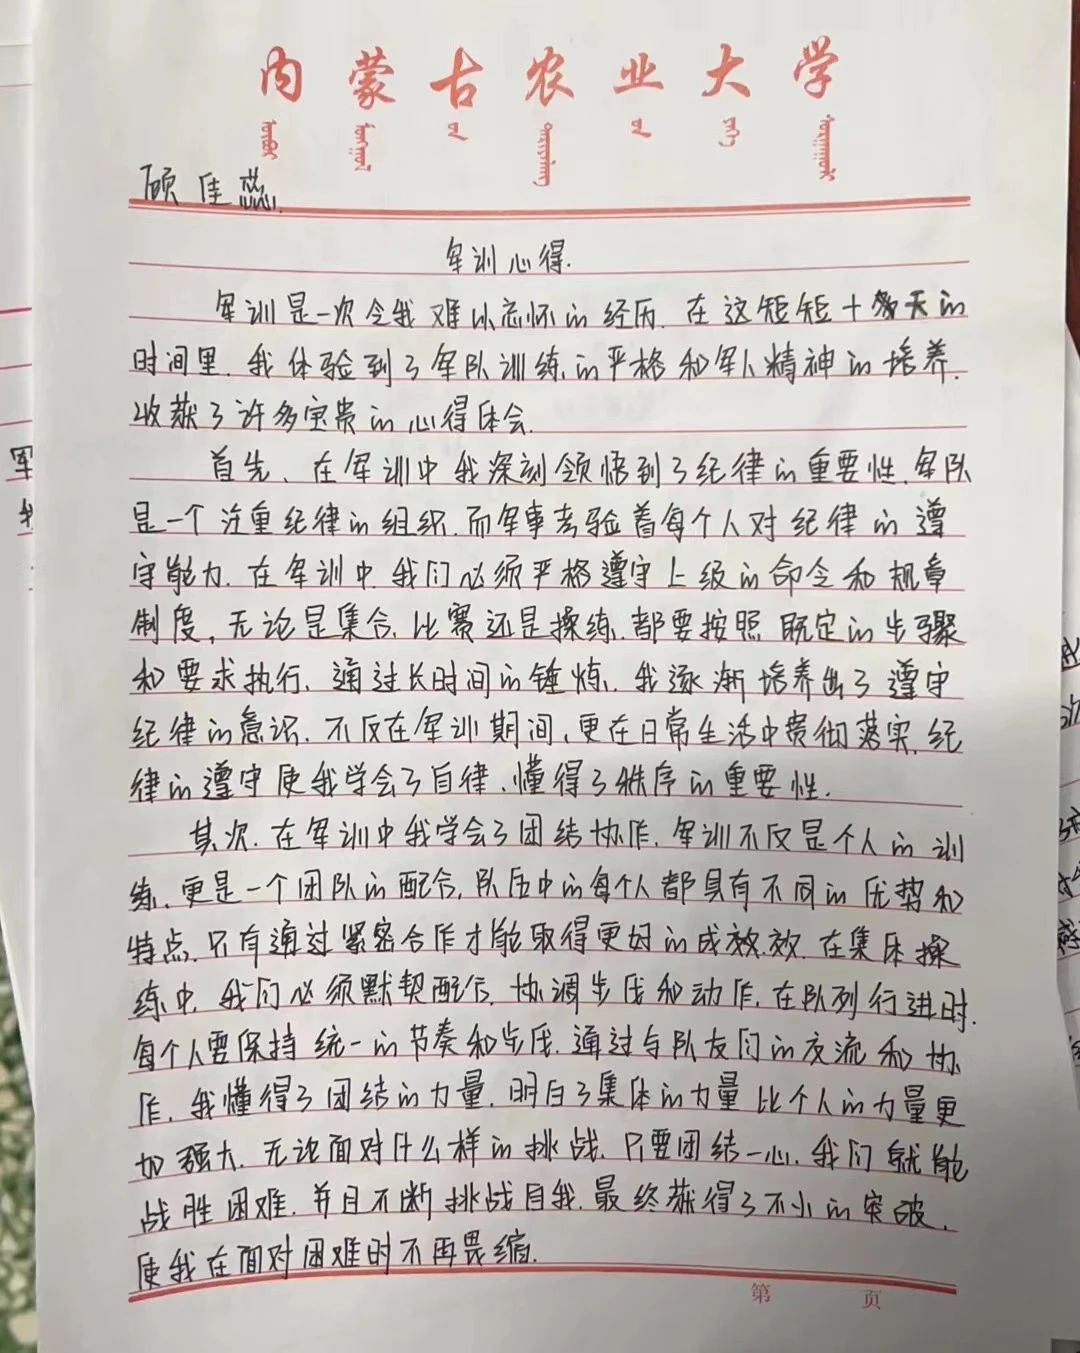 内蒙古农业大学
顾佳蕊.
军训心得.
军训是一次令我难以忘怀的经历.在这短短十多天的
时间里.我体验到了军队训练的严格和军人精神的培养.
收获了许多宝贵的心得体会.
首先、在军训中我深刻领悟到了纪律的重要性.军队
是一个注重纪律的组织.而军事考验着每个人对纪律的遵
守能力.在军训中.我们必须严格遵守上级的命令和规章
制度,无论是集合、比赛还是操练.都要按照既定的步骤
和要求执行、通过长时间的锤炼.我逐渐培养出了遵守
纪律的意识.不仅在军训期间,更在日常生活中贯彻落实.纪
律的遵守使我学会了自律.懂得了秩序的重要性.
其次.在军训中我学会了团结协作.军训不仅是个人的训
练.更是一个团队的配合.队伍中的每个人都具有不同的优势和
特点.只有通过紧密合作才能取得更好的成效.效.在集体操
练中.我们必须默契配合.协调步伐和动作.在队列行进时.
每个人要保持统一的节奏和步伐.通过与队友们的交流和协
作.我懂得了团结的力量.明白了集体的力量比个人的力量更
加强大.无论面对什么样的挑战.只要团结一心.我们就能
战胜困难.并且不断挑战自我.最终获得了不小的突破.
使我在面对困难时不再畏缩.
第 页
军